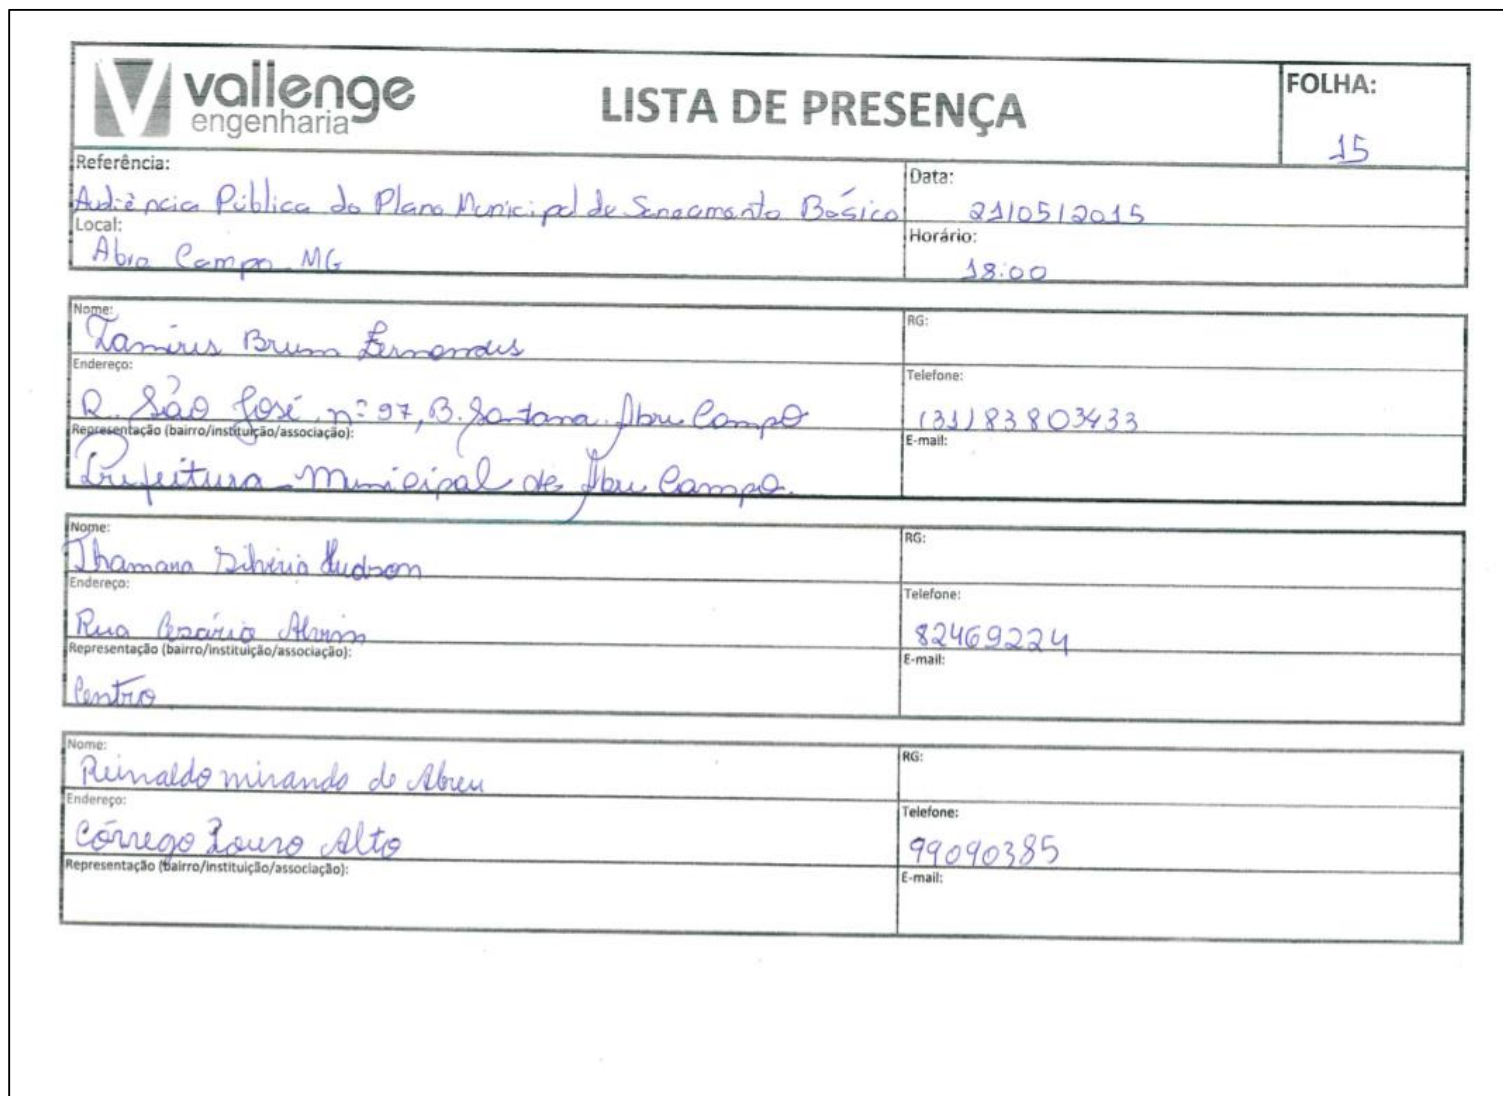 vallenge
engenharia
LISTA DE PRESENÇA
FOLHA:
15
Referência:
Audiência Pública do Plano Municipal de Saneamento Básico
Data:
21/05/2015
Local:
Abre Campo MG
Horário:
18:00
Nome:
Tamires Brum Fernandes
RG:
Endereço:
R. São José nº 97, B. Santana. Abre Campo
Telefone:
(31) 83803433
Representação (bairro/instituição/associação):
Prefeitura Municipal de Abre Campo.
E-mail:
Nome:
Thamara Hudson
RG:
Endereço:
Rua Cesário Alvim
Telefone:
82469224
Representação (bairro/instituição/associação):
Centro
E-mail:
Nome:
Reinaldo miranda de Abreu
RG:
Endereço:
Córrego Louro Alto
Telefone:
99090385
Representação (bairro/instituição/associação):
E-mail: